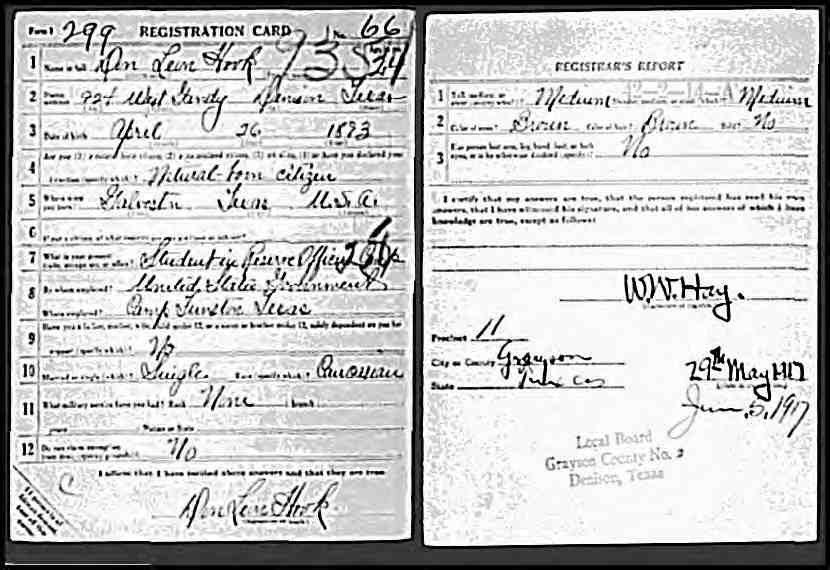 Form 1 299 REGISTRATION CARD No. 66
1 Name in full Don Hook
2 Home address 924 West Gandy Denison Texas
3 Date of birth April 26 1893
4 Are you (1) a natural-born citizen, (2) a naturalized citizen, (3) an alien, (4) or have you declared your
intention (specify which)? Natural-born citizen
5 Where were you born? Texas U.S.A.
6 If not a citizen, of what country are you a citizen or subject?
7 What is your present trade, occupation, or office? Student in Reserve Officers
8 By whom employed? United States Government
Where employed? Camp Funston Texas
9 Have you a father, mother, wife, child under 12, or a sister or brother under 12, solely dependent on you for
support (specify which)? No
10 Married or single (which)? Single Race (specify which)?
11 What military service have you had? Rank None branch
years Nation or State
12 Do you claim exemption from draft (specify grounds)? No
I affirm that I have verified above answers and that they are true
Don Hook
REGISTRAR'S REPORT
1 Tall, medium, or short (specify which)? Medium Slender, medium, or stout (which)? Medium
2 Color of eyes? Brown Color of hair? Brown Bald? No
3 Has person lost arm, leg, hand, foot, or both eyes, or is he otherwise disabled (specify)? No
I certify that my answers are true, that the person registered has read his own
answers, that I have witnessed his signature, and that all of his answers of which I have
knowledge are true, except as follows:
W.W. Hay.
Precinct 11
City or County Grayson
State Texas
29th May 1917
June 5, 1917
Local Board
Grayson County No. 2
Denison, Texas